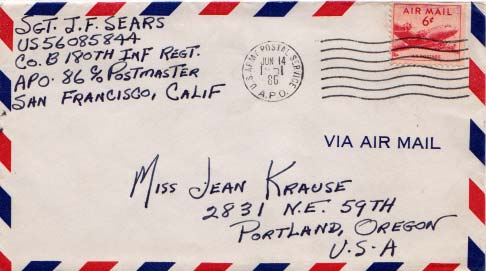 SGT. J.F. SEARS
US56085844
CO. B 180TH INF REGT.
APO. 86 % POSTMASTER
SAN FRANCISCO, CALIF
U.S. ARMY POSTAL SERVICE
JUN 14
86
A.P.O.
AIR MAIL
6¢
U.S. POSTAGE
VIA AIR MAIL
MISS JEAN KRAUSE
2831 N.E. 59TH
PORTLAND, OREGON
U.S.A